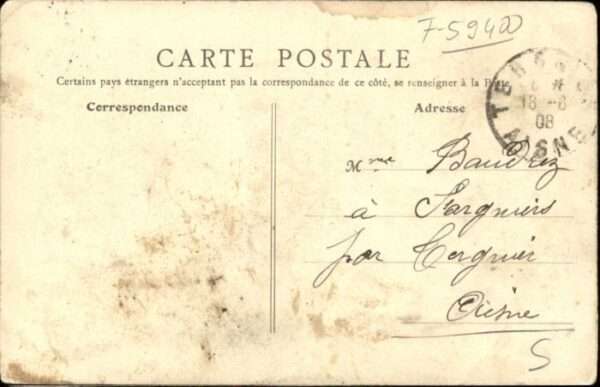 F-5940
CARTE POSTALE
Certains pays étrangers n'acceptant pas la correspondance de ce côté, se renseigner à la
Correspondance
Adresse
18 -8
08
AISNE
Mme Baudrez
à Fargniers
par Tergnier
Aisne
S